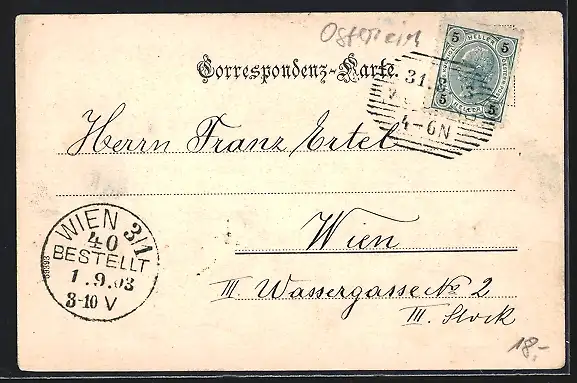 Osterreich
Correspondenz-Karte.
5 HELLER 5
5 HELLER 5
31.8.
4-6N
Herrn Franz Ertel
Wien
III Wassergasse No 2
III. Stock
WIEN 3/1
40
BESTELLT
1.9.03
8-10V
69393
18.-